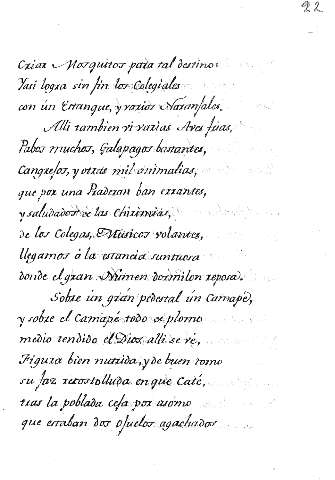 22
Criar Mosquitos para tal destino:
Y asi logra sin fin los Colegiales
con ún Estanque, y varios Naranjales.
Alli tambien vi varias Aves frias,
Pabos muchos, Galapagos bastantes,
Cangrejos, y otras mil animalias,
que por una Praderon ban errantes,
y saludados de las Chirimias,
de los Colegas, Músicos volantes,
llegamos á la estancia suntuosa
donde el gran Númen dormilon reposa.
Sobre ún grán pedestal ún Camapé,
y sobre el Camapé todo á plomo
medio tendido el Dios alli se vé,
Figura bien nutrida, y de buen tomo
su faz en que Caté,
tras la poblada ceja por asomo
que estaban dos ojuelos agachados